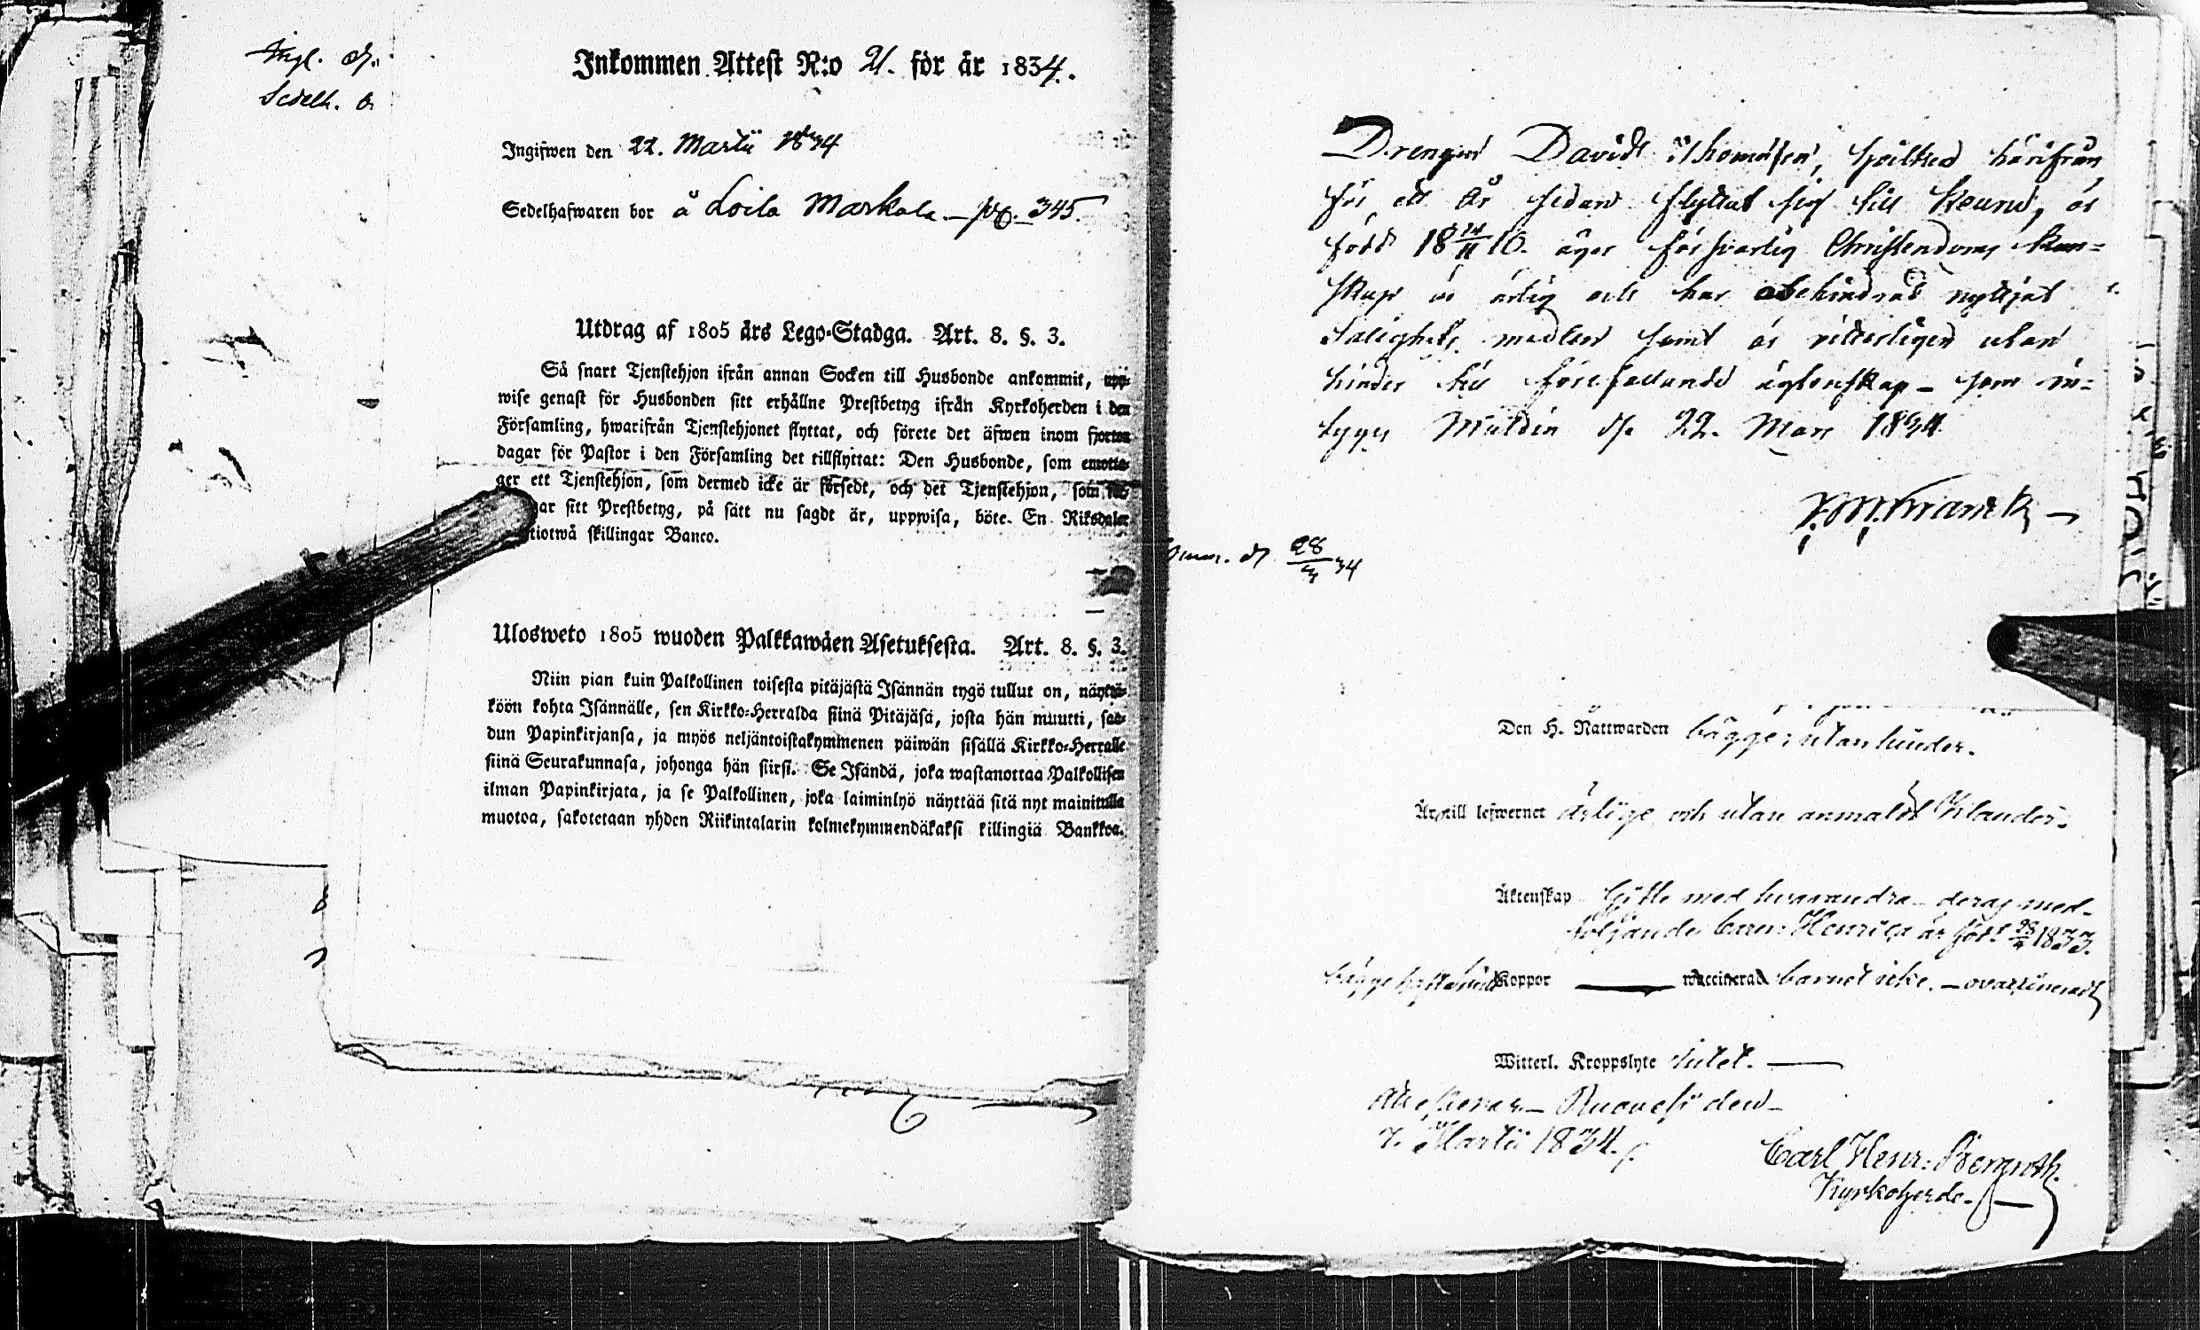 Ingl. d.
Sedelh. b.
Inkommen Attest N:o 21. för år 1834.
Ingifwen den 22. Martii 1834
Sedelhafwaren bor å Loila Markala - pag. 345
Utdrag af 1805 års Lego-Stadga. Art. 8. §. 3.
Så snart Tjenstehjon ifrån annan Socken till Husbonde ankommit, upp-
wise genast för Husbonden sitt erhållne Prestbetyg ifrån Kyrkoherden i den
Församling, hwarifrån Tjenstehjonet flyttat, och förete det äfwen inom fjorton
dagar för Pastor i den Församling det tillflyttat: Den Husbonde, som emotta-
ger ett Tjenstehjon, som dermed icke är försedt, och det Tjenstehjon, som
sitt Prestbetyg, på sätt nu sagdt är, uppwisa, böte En Riksdaler
skillingar Banco.
Ulosweto 1805 wuoden Palkkawäen Asetuksesta. Art. 8. §. 3.
Niin pian kuin Palkollinen toisesta pitäjästä Isännän tygö tullut on, näyttä-
köön kohta Isännälle, sen Kirkko-Herralda siinä Pitäjäsä, josta hän muutti, saa-
dun Papinkirjansa, ja myös neljäntoistakymmenen päiwän sisällä Kirkko-Herralle
siinä Seurakunnasa, johonga hän siirsi. Se Isändä, joka wastanottaa Palkollisen
ilman Papinkirjata, ja se Palkollinen, joka laiminlyö näyttää sitä nyt mainitulla
muotoa, sakotetaan yhden Riikintalarin kolmekymmendäkaksi killingiä Bankkoa.
Drengen David Thomasson, hvilken härifrån
för ett år sedan flyttat sig till Keuru, är
född 18 24/11 16. äger försvarlig Christendoms kun-
skap är ärlig och har obehindrad nyttjat
Salighets medlen samt är vitterligen utan
hinder till förefallande ägtenskap - som in-
tygas Muldia d. 22. Mars 1834
28/3 34
Den H. Nattwarden bägge; utan hinder.
Är till lefwernet ärlige och utan anmäldt Klander.
Äktenskap Gifte med hvarandra - deras med-
följande barn: Henrica är född 1833.
bägge haft Koppor — waccinerad barnet icke. — ovaccineradt
Witterl. Kroppslyte intet. —
Ruovesi den
7. Martii 1834.
Carl Henr: Bergroth.
Kyrkoherde.